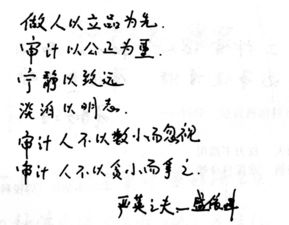 做人以立品为先.
审计以公正为重.
宁静以致远
淡泊以明志.
审计人不以数小而忽视
审计人不以贪小而手之.
严英之夫—盛